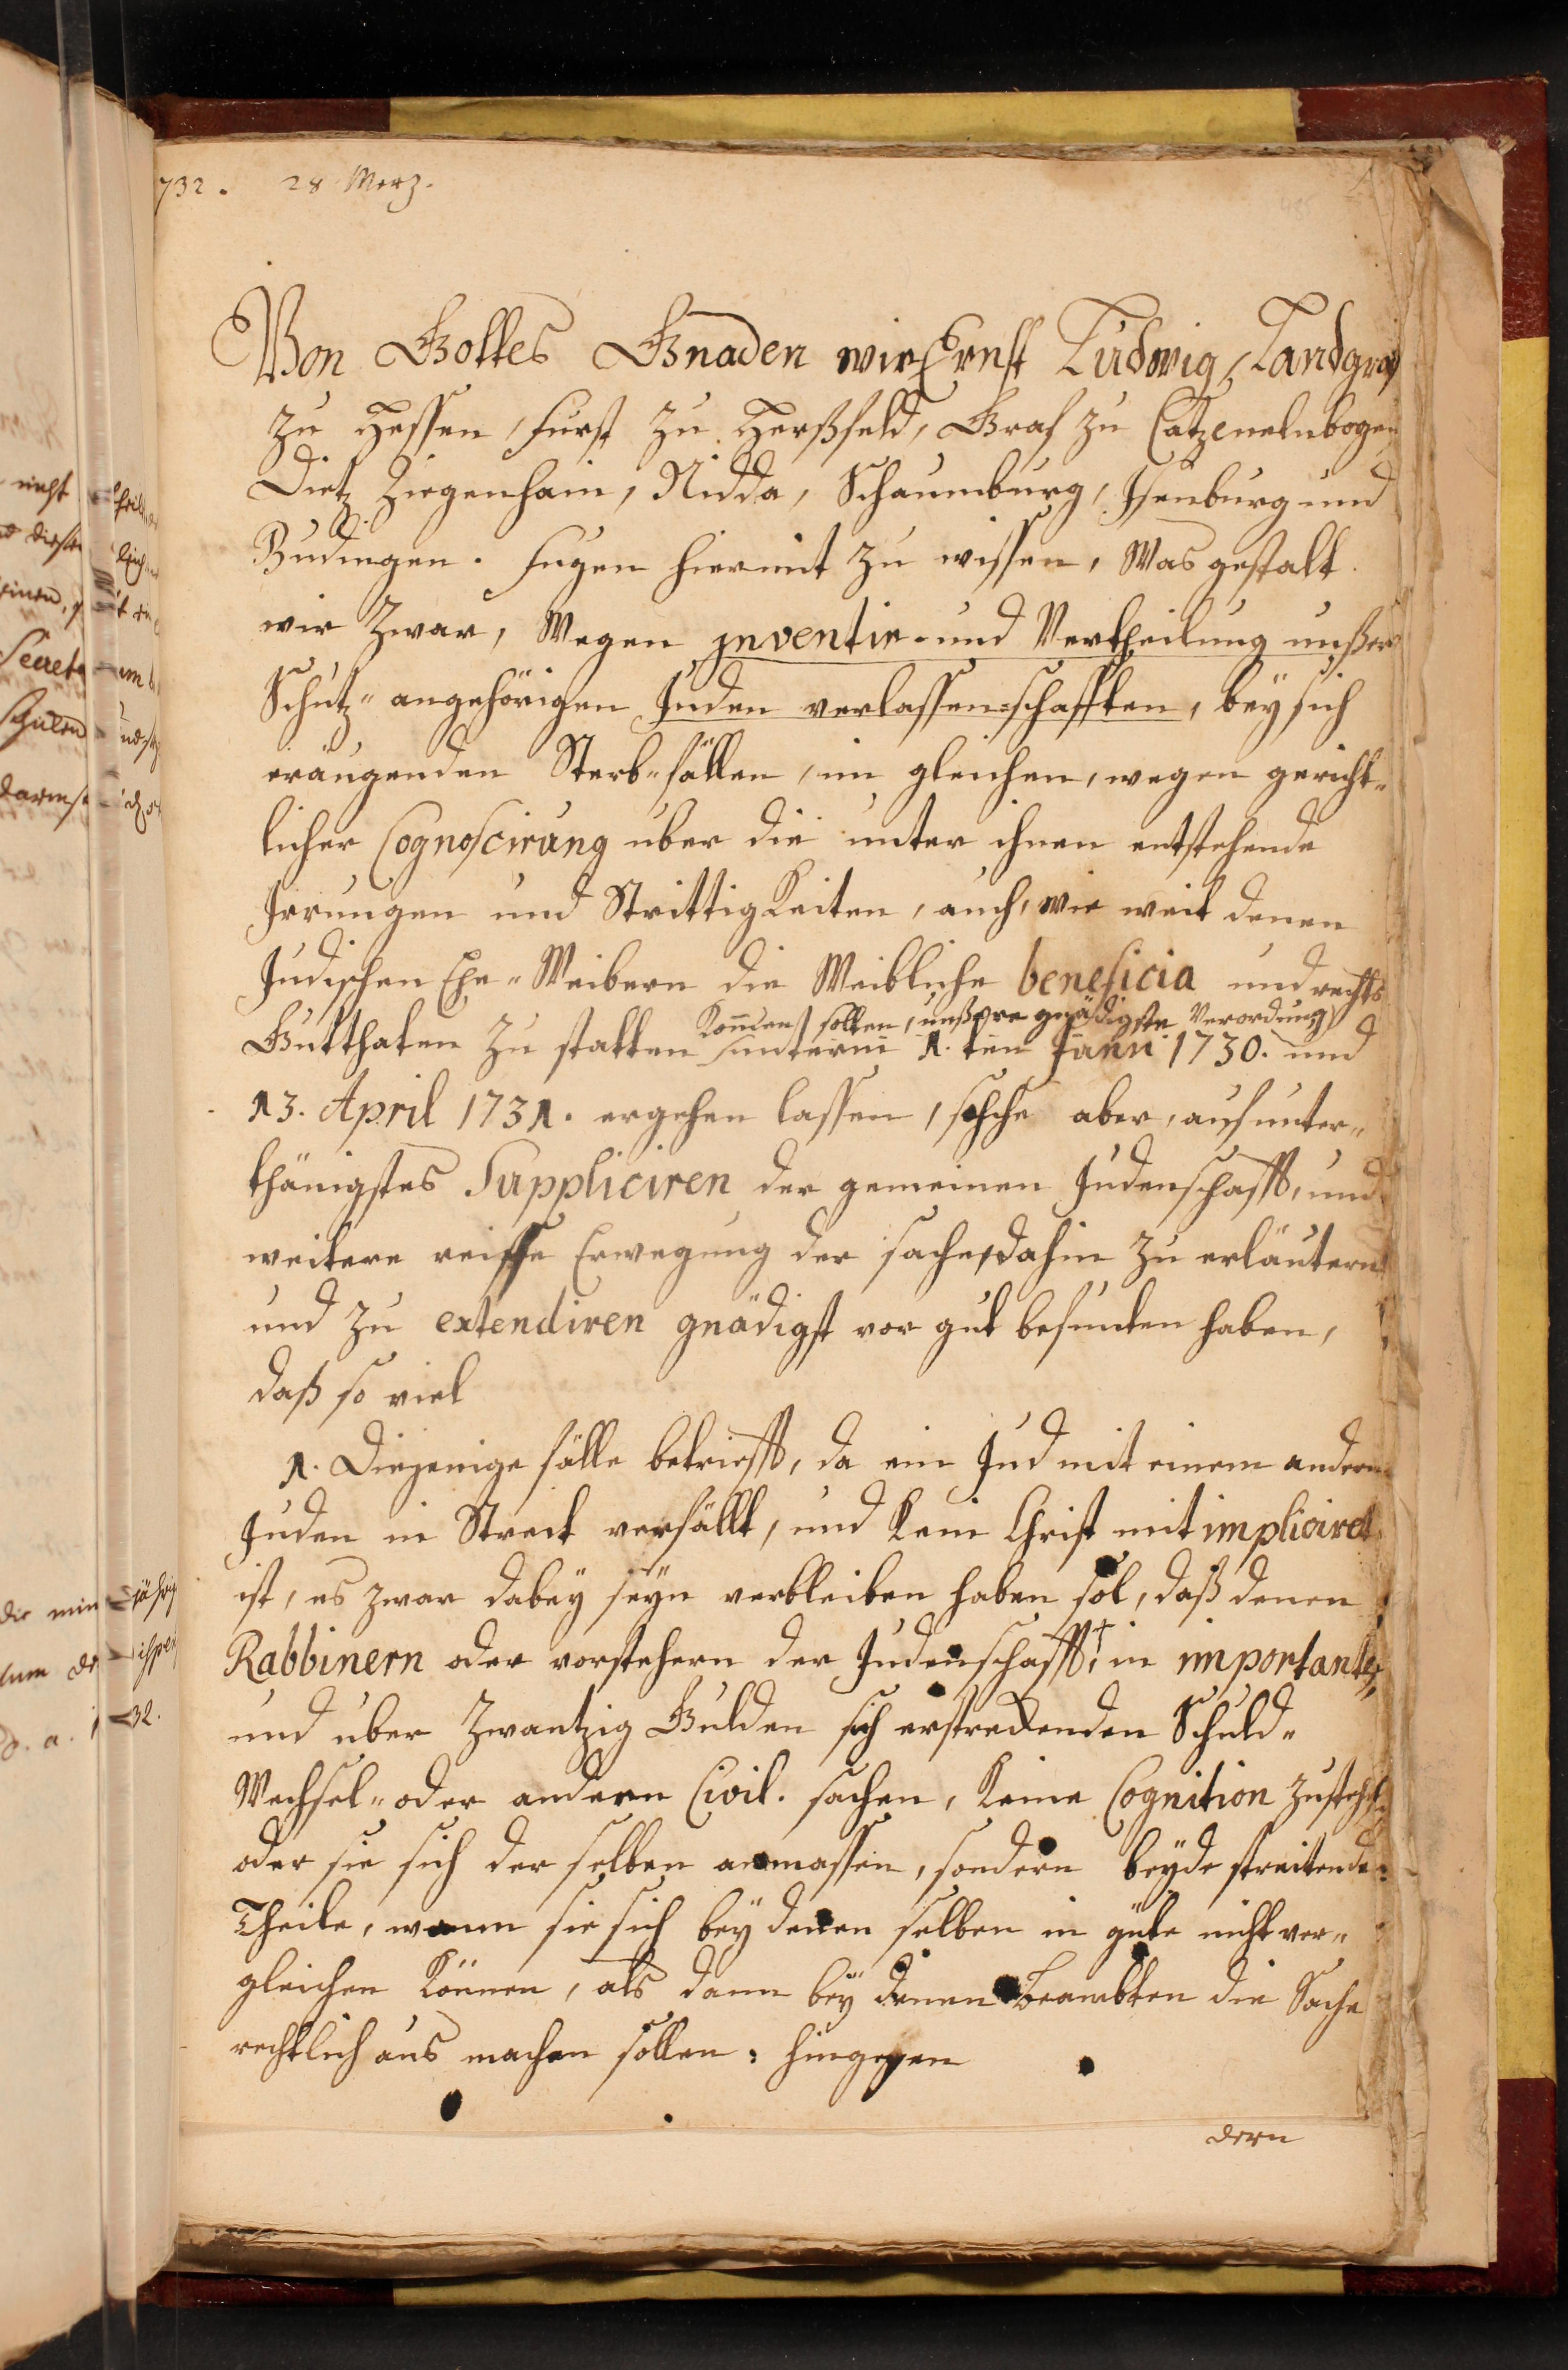 732. 28 Merz.
Von Gottes Gnaden wir Ernst Ludwig, Landgraf
zu Hessen, Furst zu Herßfeld, Graf zu Catzenelnbogen
Dietz Ziegenhain, Nidda, Schaumburg, Isenburg und
Budingen. Fugen hiermit zu wissen, Was gestalt
wir Zwar, Wegen Inventir- und Vertheilung unßer
Schutz- angehörigen Juden verlassen-schafften, bey sich
eräugenden Sterb-fällen, im gleichen, wegen gericht-
licher Cognoscirung uber die unter ihnen entstehende
Irrungen und Strittigkeiten, auch, wie weit denen
Judischen Ehe-Weibern die Weibliche beneficia und rechts
Konnen sollen, unßere gnädigste Verordnung
Gutthaten zu statten unterm 1. ten Janri 1730. und
13. April 1731. ergehen lassen, solche aber, auf unter-
thänigstes Suppliciren der gemeinen Judenschafft, und
weitere reiffe Erwegung der sache, dahin zu erläutern
und zu extendiren gnädigst vor gut befunden haben,
daß so viel
1. Diejenige fälle betriefft, da ein Jud mit einem andern
Juden in Streit verfällt, und Kein Christ mit impliciret
ist, es zwar dabey seyn verbleiben haben sol, daß denen
Rabbinern oder vorstehern der Judenschafft, in importanten
und uber Zwantzig Gulden sich erstreckenden Schuld-
Wechsel- oder andern Civil. sachen, Keine Cognition zustehe,
oder sie sich der selben anmassen, sondern beyde streitende
Theile, wann sie sich bey denen selben in güte nicht ver-
gleichen Können, als dann bey denen Beambten die Sache
rechtlich aus machen sollen: hingegen
dern
nicht
dieser
einem,
Secret
Schulen
darmst
die min
jährig
32.